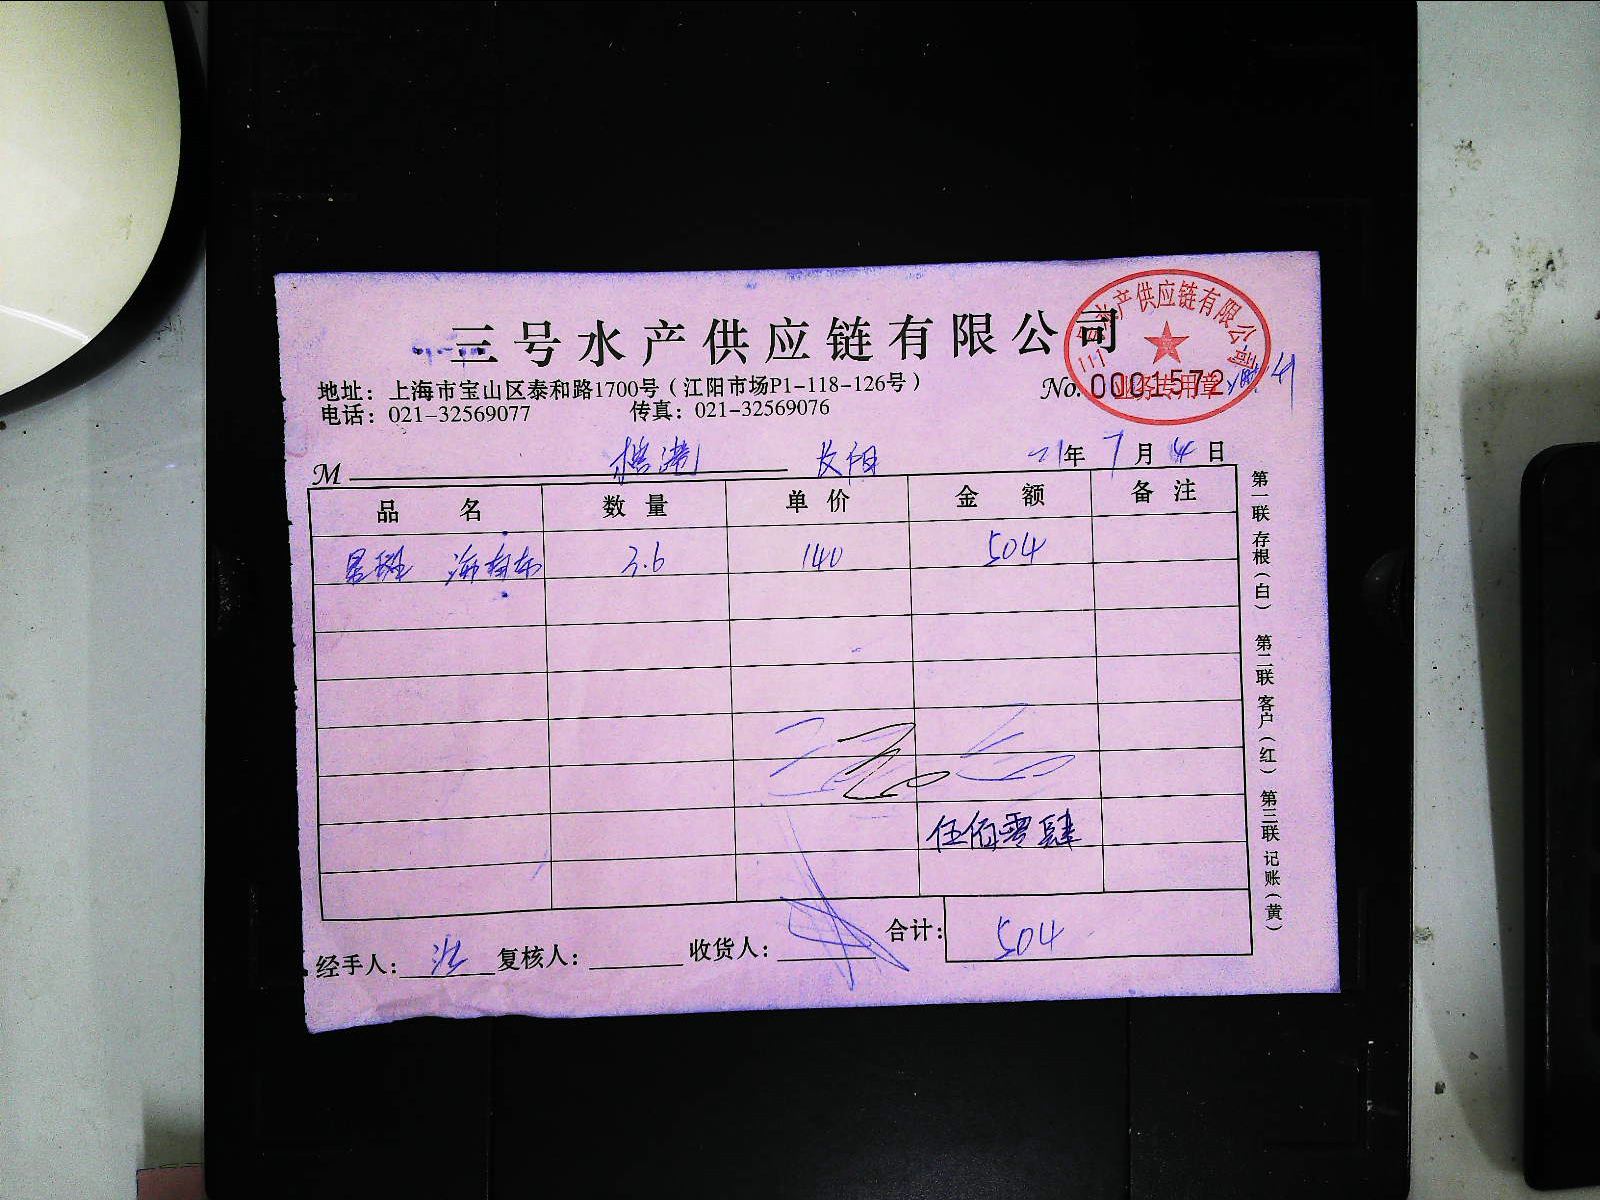 三号水产供应链有限公司
水产供应链有限公司
业务专用章
地址：上海市宝山区泰和路1700号（江阳市场P1-118-126号）
No. 0001572
电话：021-32569077 传真：021-32569076
M 长阳 21年7月4日
品名 数量 单价 金额 备注
星斑 3.6 140 504
伍佰零肆
经手人： 复核人： 收货人： 合计：504
第一联 存根（白） 第二联 客户（红） 第三联 记账（黄）